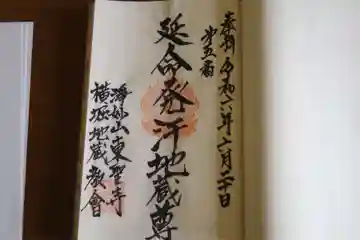 奉拝 令和六年二月二十日
第五番
延命発汗地蔵尊
海妙山東聖寺
横堀地蔵教會